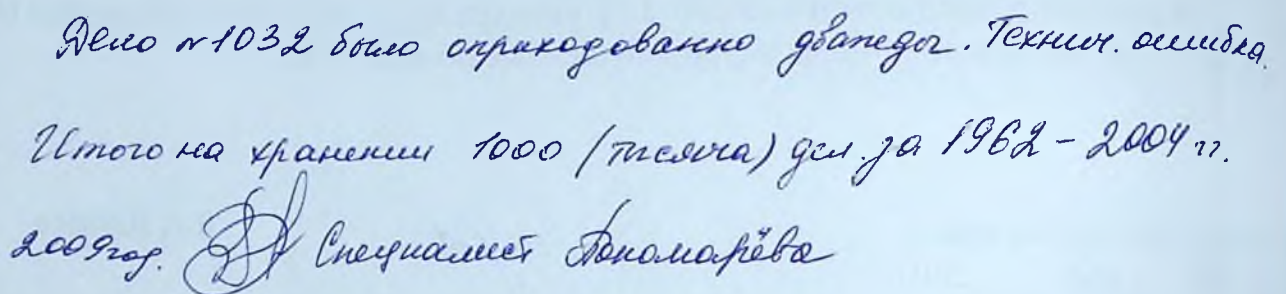 Дело №1032 было оприходованно дважды. Технич. ошибка.
Итого на хранении 1000 (тысяча) дел. за 1962 - 2004 гг.
2009год. Специалист Пономарёва